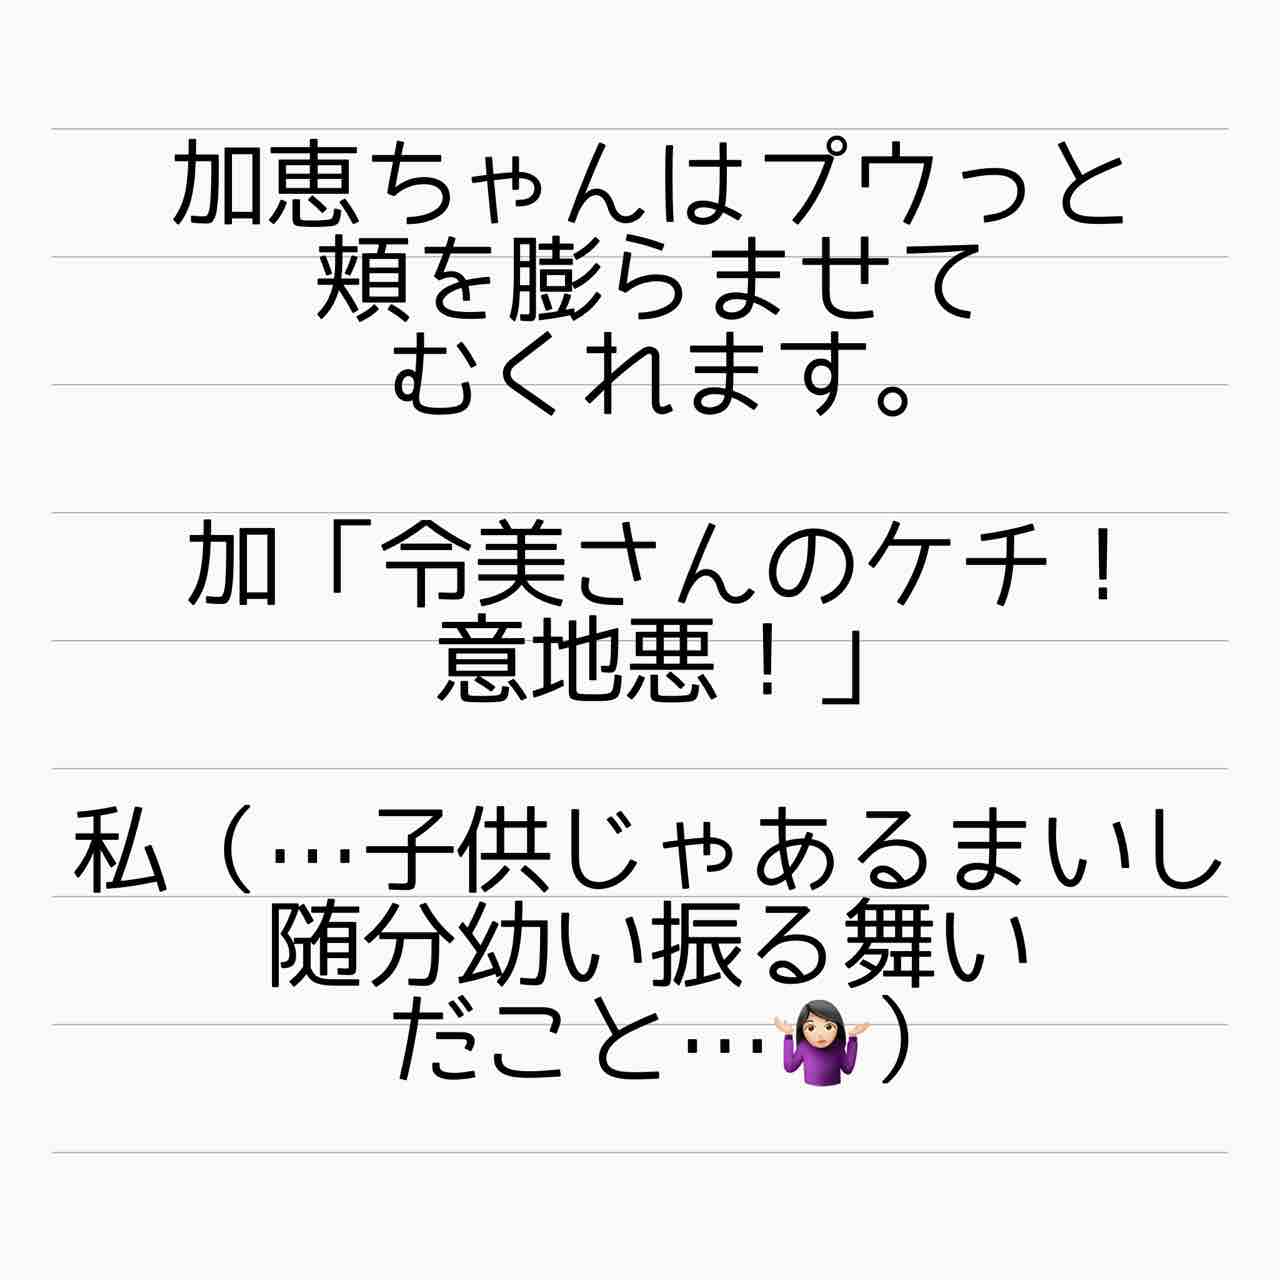 加恵ちゃんはプウっと
頬を膨らませて
むくれます。
加「令美さんのケチ！
意地悪！」
私（…子供じゃあるまいし
随分幼い振る舞い
だこと…🤷🏻‍♀️）